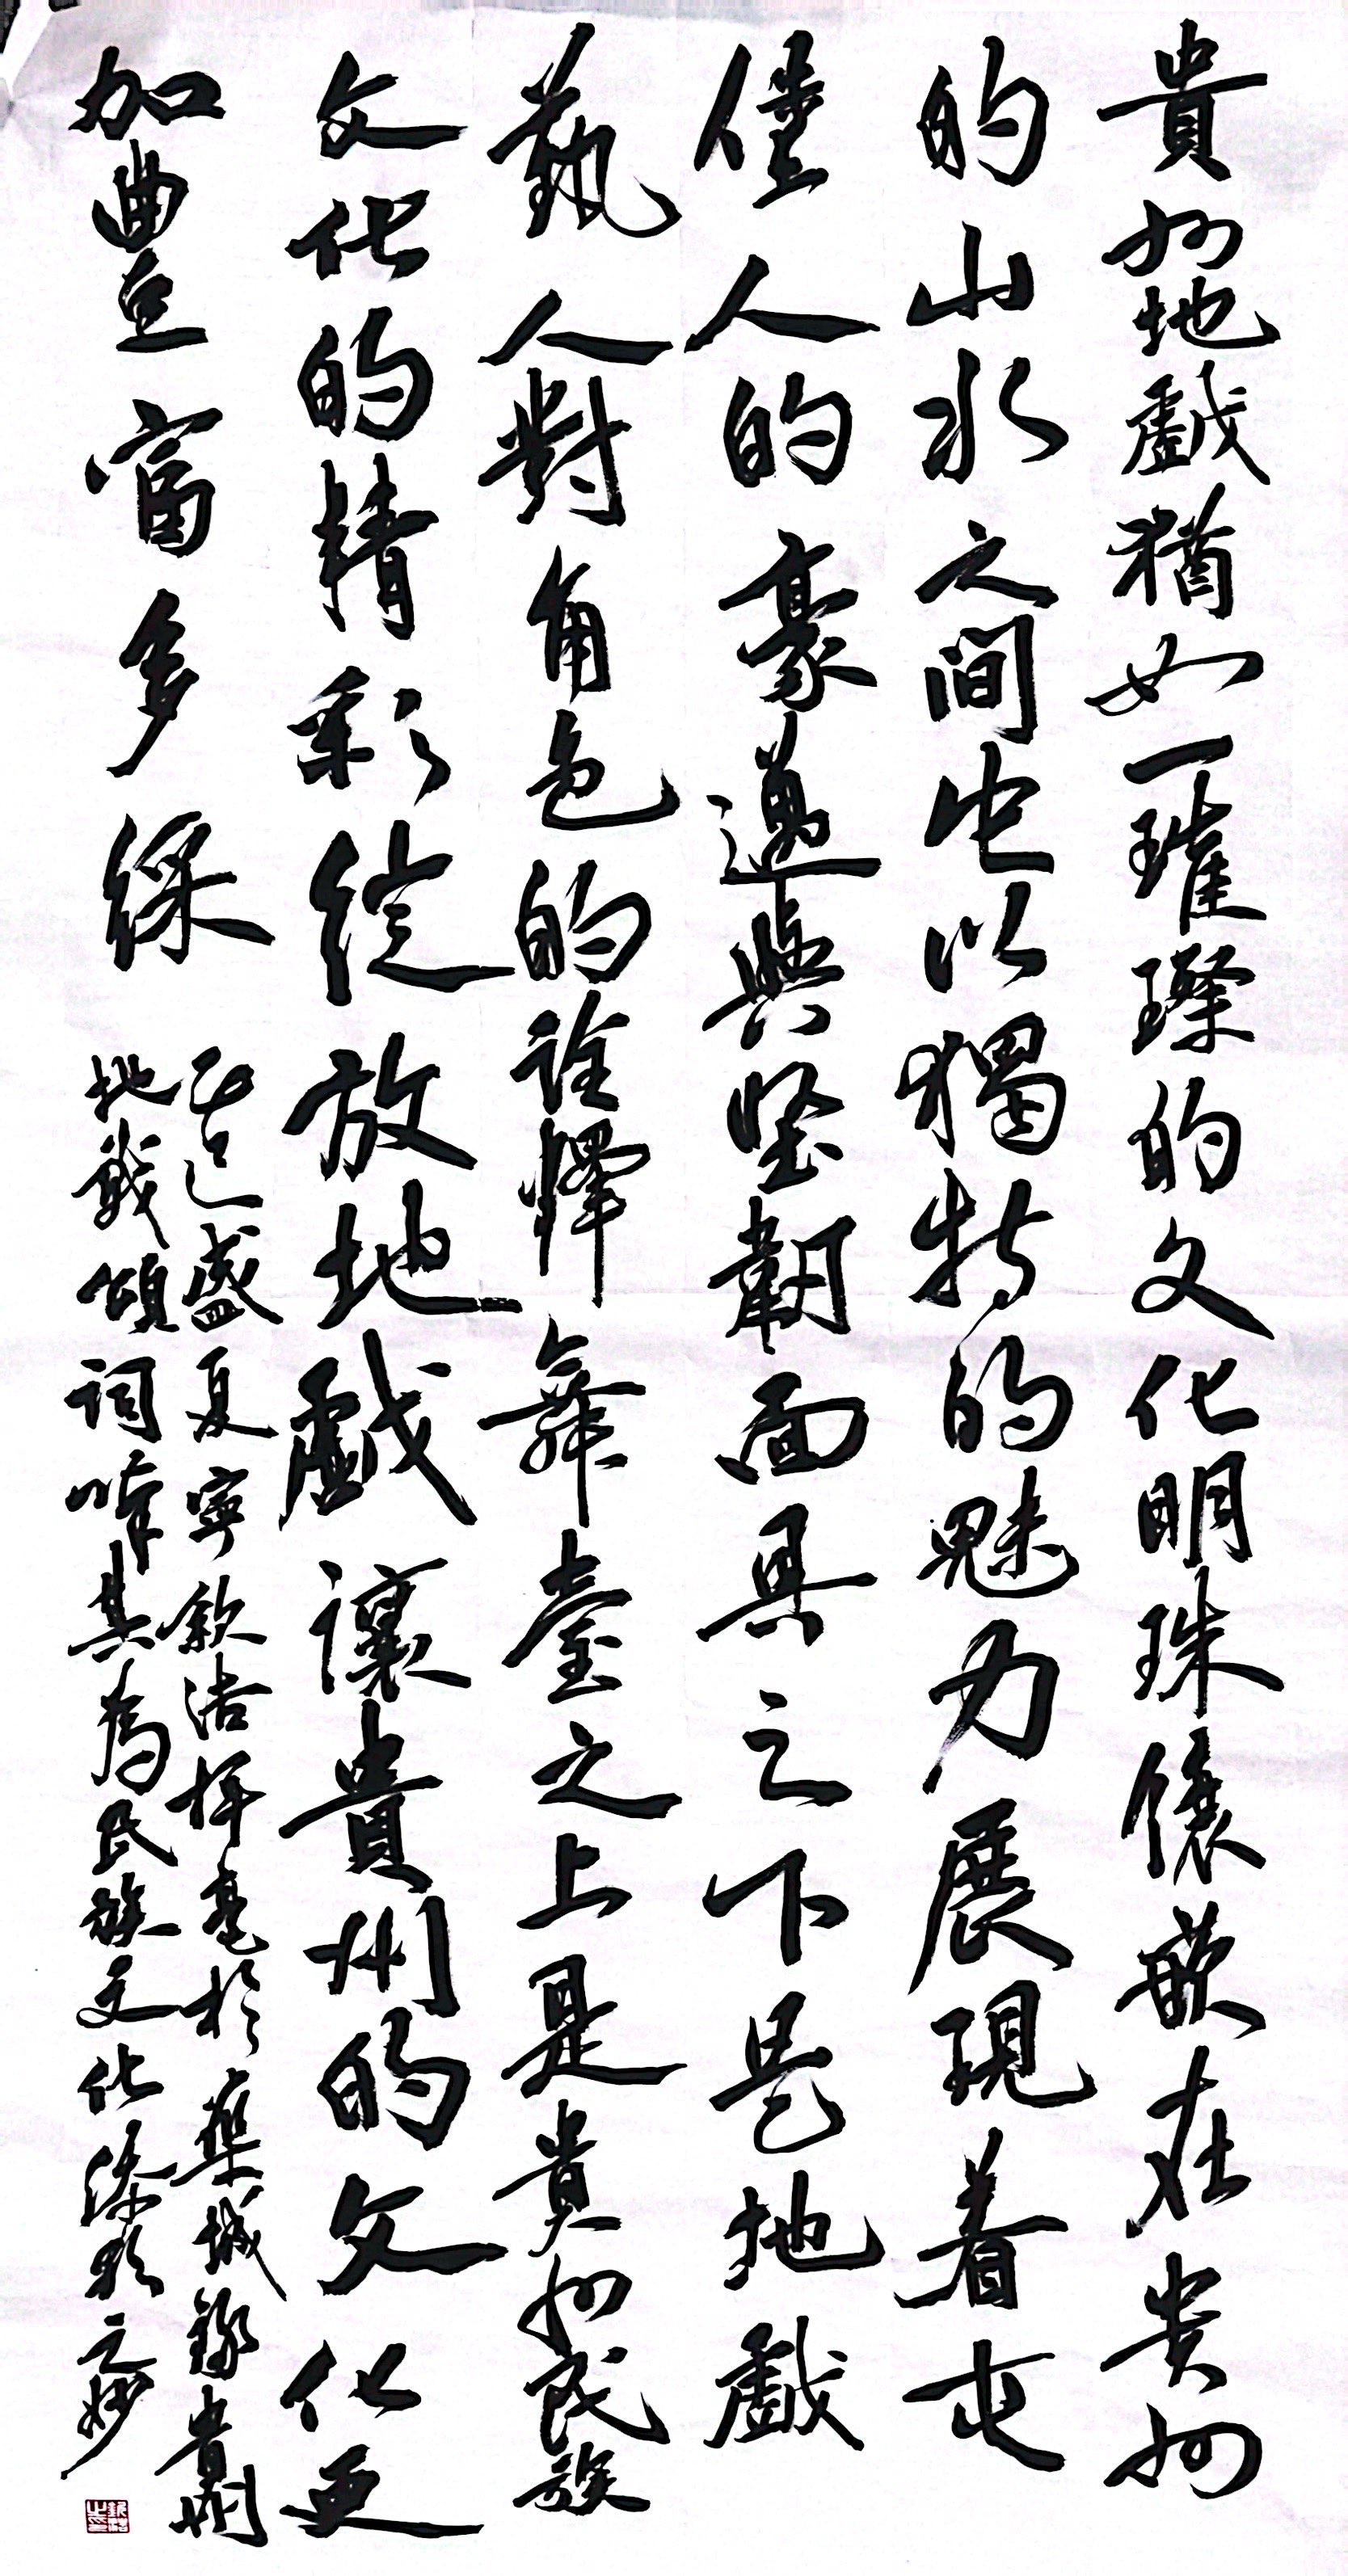 貴州地戲猶如一璀璨的文化明珠鑲嵌在贵州
的山水之間它以獨特的魅力展現着屯
堡人的豪邁與坚韌面具之下是地戲
藝人對角色的詮釋舞臺之上是貴州民族
文化的精彩綻放地戲讓貴州的文化更
加豐富多綵
乙巳盛夏寧欽浩揮毫於藥城錄貴州
地戲頌詞嘆其為民族文化添彩之妙